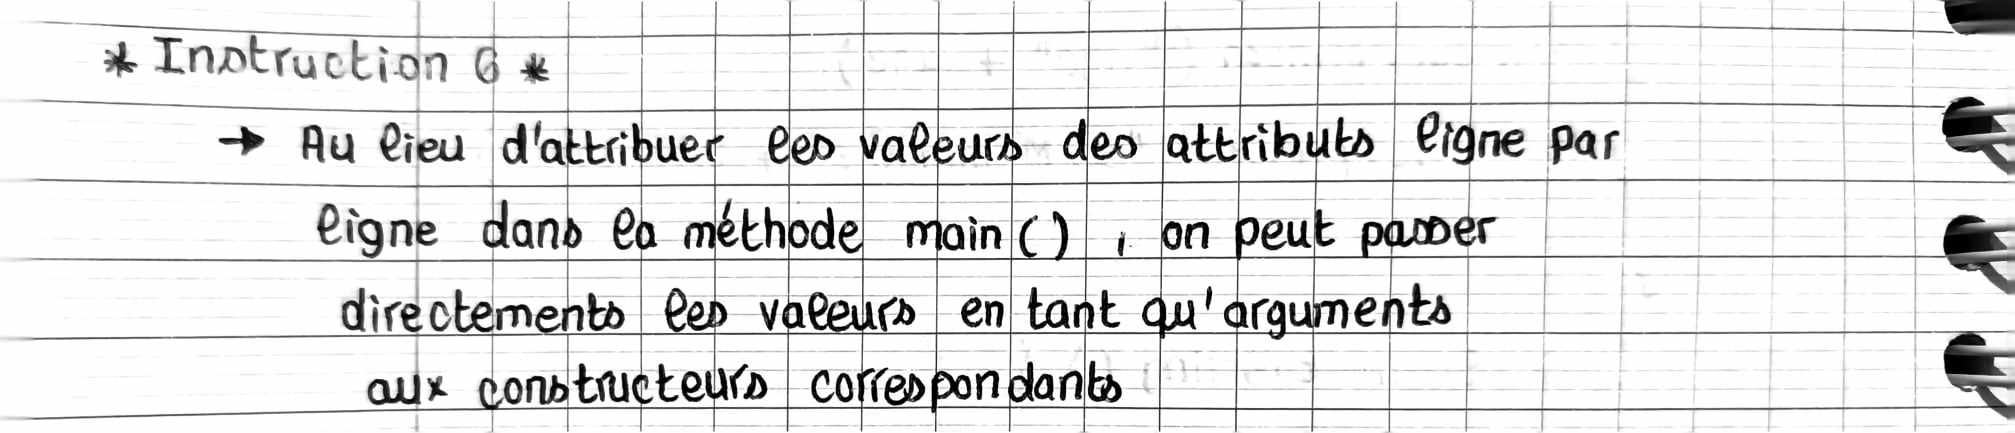 * Instruction 6 *
→ Au lieu d'attribuer les valeurs des attributs ligne par
ligne dans la méthode main() , on peut passer
directements les valeurs en tant qu'arguments
aux constructeurs correspondants